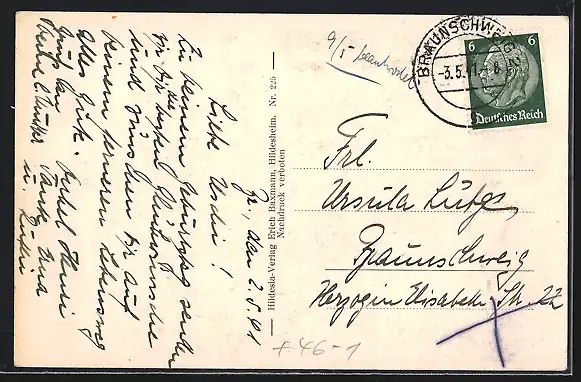 Br., den 2.5.41
Liebe Uschi!
Zu Deinem Geburtstag senden
wir Dir die herzlichsten Glückwünsche
und wünschen Dir auf
Deinem ferneren Lebensweg
alles Gute. Onkel Heini
Tante Anna
u.
9/5 beantwortet
Hildesia-Verlag Erich Baxmann, Hildesheim. Nr. 225
Nachdruck verboten
BRAUNSCHWEIG
-3.5.41.-8
6 6
Deutsches Reich
Frl.
Ursula Lütge
Braunschweig
Herzogin Elisabeth Str. 22
+46-1